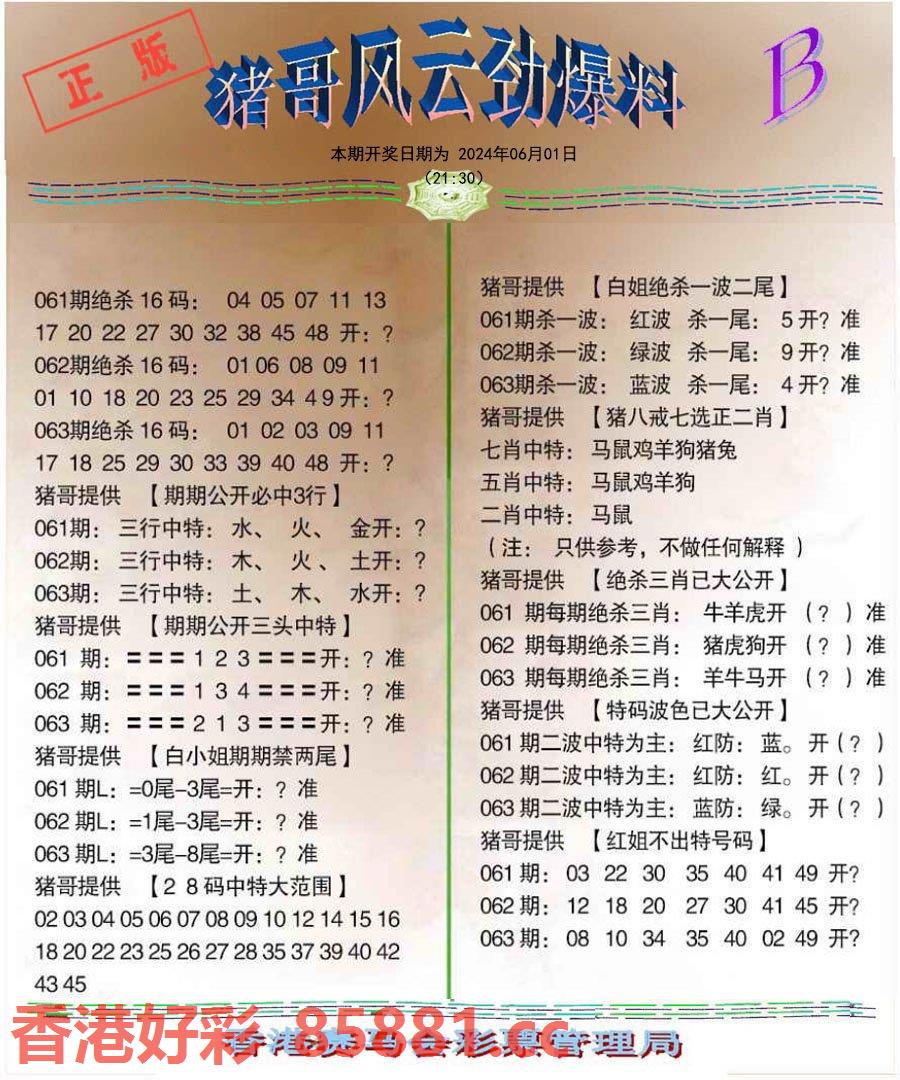 正版
猪哥风云劲爆料
B
本期开奖日期为 2024年06月01日
(21:30)
061期绝杀16码： 04 05 07 11 13
17 20 22 27 30 32 38 45 48 开：？
062期绝杀16码： 01 06 08 09 11
01 10 18 20 23 25 29 34 4 9 开：？
063期绝杀16码： 01 02 03 09 11
17 18 25 29 30 33 39 40 48 开：？
猪哥提供 【期期公开必中3行】
061期： 三行中特：水、 火、 金开：？
062期： 三行中特：木、 火 、土开：？
063期： 三行中特：土、 木、 水开：？
猪哥提供 【期期公开三头中特】
061 期：〓〓〓1 2 3〓〓〓开：？准
062 期：〓〓〓1 3 4〓〓〓开：？准
063 期：〓〓〓2 1 3〓〓〓开：？准
猪哥提供 【白小姐期期禁两尾】
061 期L：=0尾-3尾=开：？准
062 期L：=1尾-3尾=开：？准
063 期L：=3尾-8尾=开：？准
猪哥提供 【2 8 码中特大范围】
02 03 04 05 06 07 08 09 10 12 14 15 16
18 20 22 23 26 27 28 35 37 39 40 42
43 45
猪哥提供 【白姐绝杀一波二尾】
061期杀一波： 红波 杀一尾： 5 开？准
062期杀一波： 绿波 杀一尾： 9 开？准
063期杀一波： 蓝波 杀一尾： 4 开？准
猪哥提供 【猪八戒七选正二肖】
七肖中特： 马鼠鸡羊狗猪兔
五肖中特： 马鼠鸡羊狗
二肖中特： 马鼠
（注： 只供参考，不做任何解释 ）
猪哥提供 【绝杀三肖已大公开】
061 期每期绝杀三肖： 牛羊虎开 （？）准
062 期每期绝杀三肖： 猪虎狗开 （？）准
063 期每期绝杀三肖： 羊牛马开 （？）准
猪哥提供 【特码波色已大公开】
061 期二波中特为主： 红防： 蓝。 开（？）
062 期二波中特为主： 红防： 红。 开（？）
063 期二波中特为主： 蓝防： 绿。 开（？）
猪哥提供 【红姐不出特号码】
061 期： 03 22 30 35 40 41 49 开？
062 期： 12 18 20 27 30 41 45 开？
063 期： 08 10 34 35 40 02 49 开？
香港好彩 85881.cc
香港赛马会彩票管理局